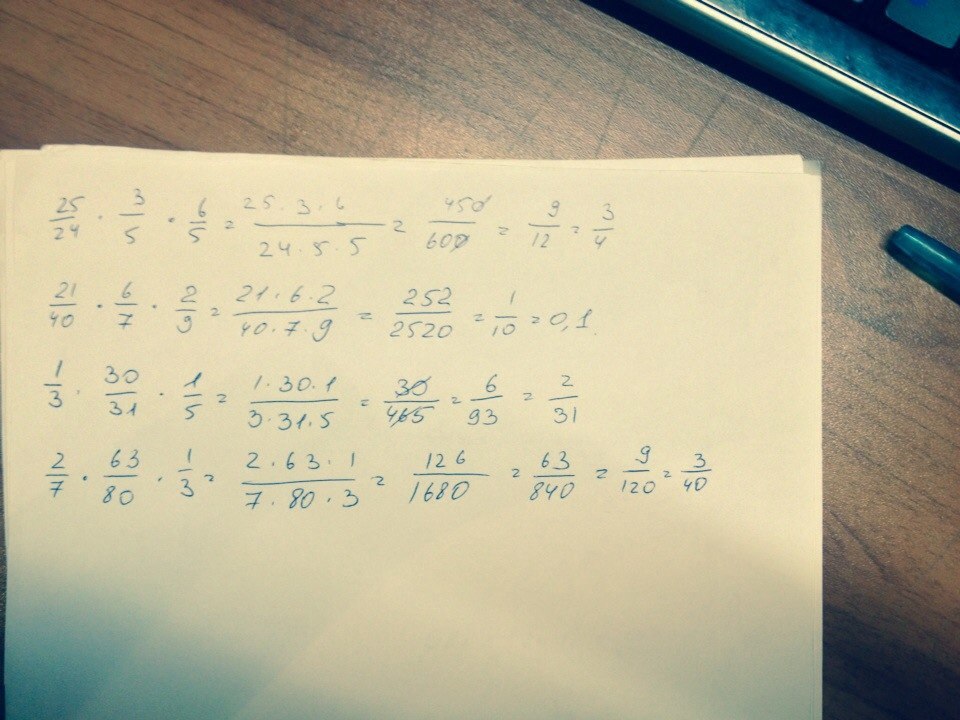 25/24 · 3/5 · 6/5 = 25·3·6/24·5·5 = 450/600 = 9/12 = 3/4
21/40 · 6/7 · 2/9 = 21·6·2/40·7·9 = 252/2520 = 1/10 = 0,1.
1/3 · 30/31 · 1/5 = 1·30·1/3·31·5 = 30/465 = 6/93 = 2/31
2/7 · 63/80 · 1/3 = 2·63·1/7·80·3 = 126/1680 = 63/840 = 9/120 = 3/40